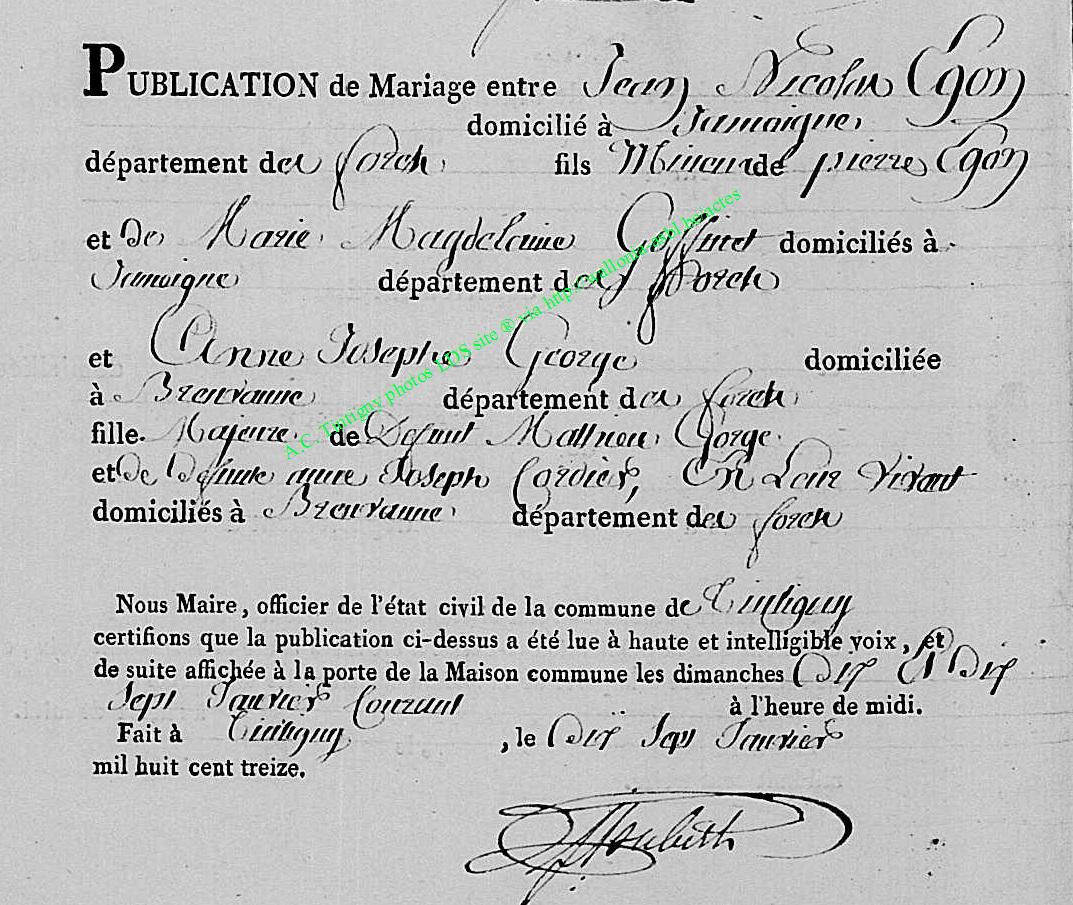 PUBLICATION de Mariage entre Jean Nicolas Egon
domicilié à Jamoigne
département des forets fils Mineur de pierre Egon
et De Marie Magdelaine Goffinet domiciliés à
Jamoigne département des forets
et Anne Josephe George domiciliée
à Breuvanne département des forets
fille Majeure de Defunt Mathieu Gorge
et De Defunte anne Joseph Cordier, En Leur Vivant
domiciliés à Breuvanne département des forets
Nous Maire, officier de l'état civil de la commune de Tintigny
certifions que la publication ci-dessus a été lue à haute et intelligible voix, et
de suite affichée à la porte de la Maison commune les dimanches Dix Et Dix
Sept Janvier Courant à l'heure de midi.
Fait à Tintigny, le Dix Sept Janvier
mil huit cent treize.
A.C. Tintigny photos EOS site ® via http://wallonia.asbl.be/actes